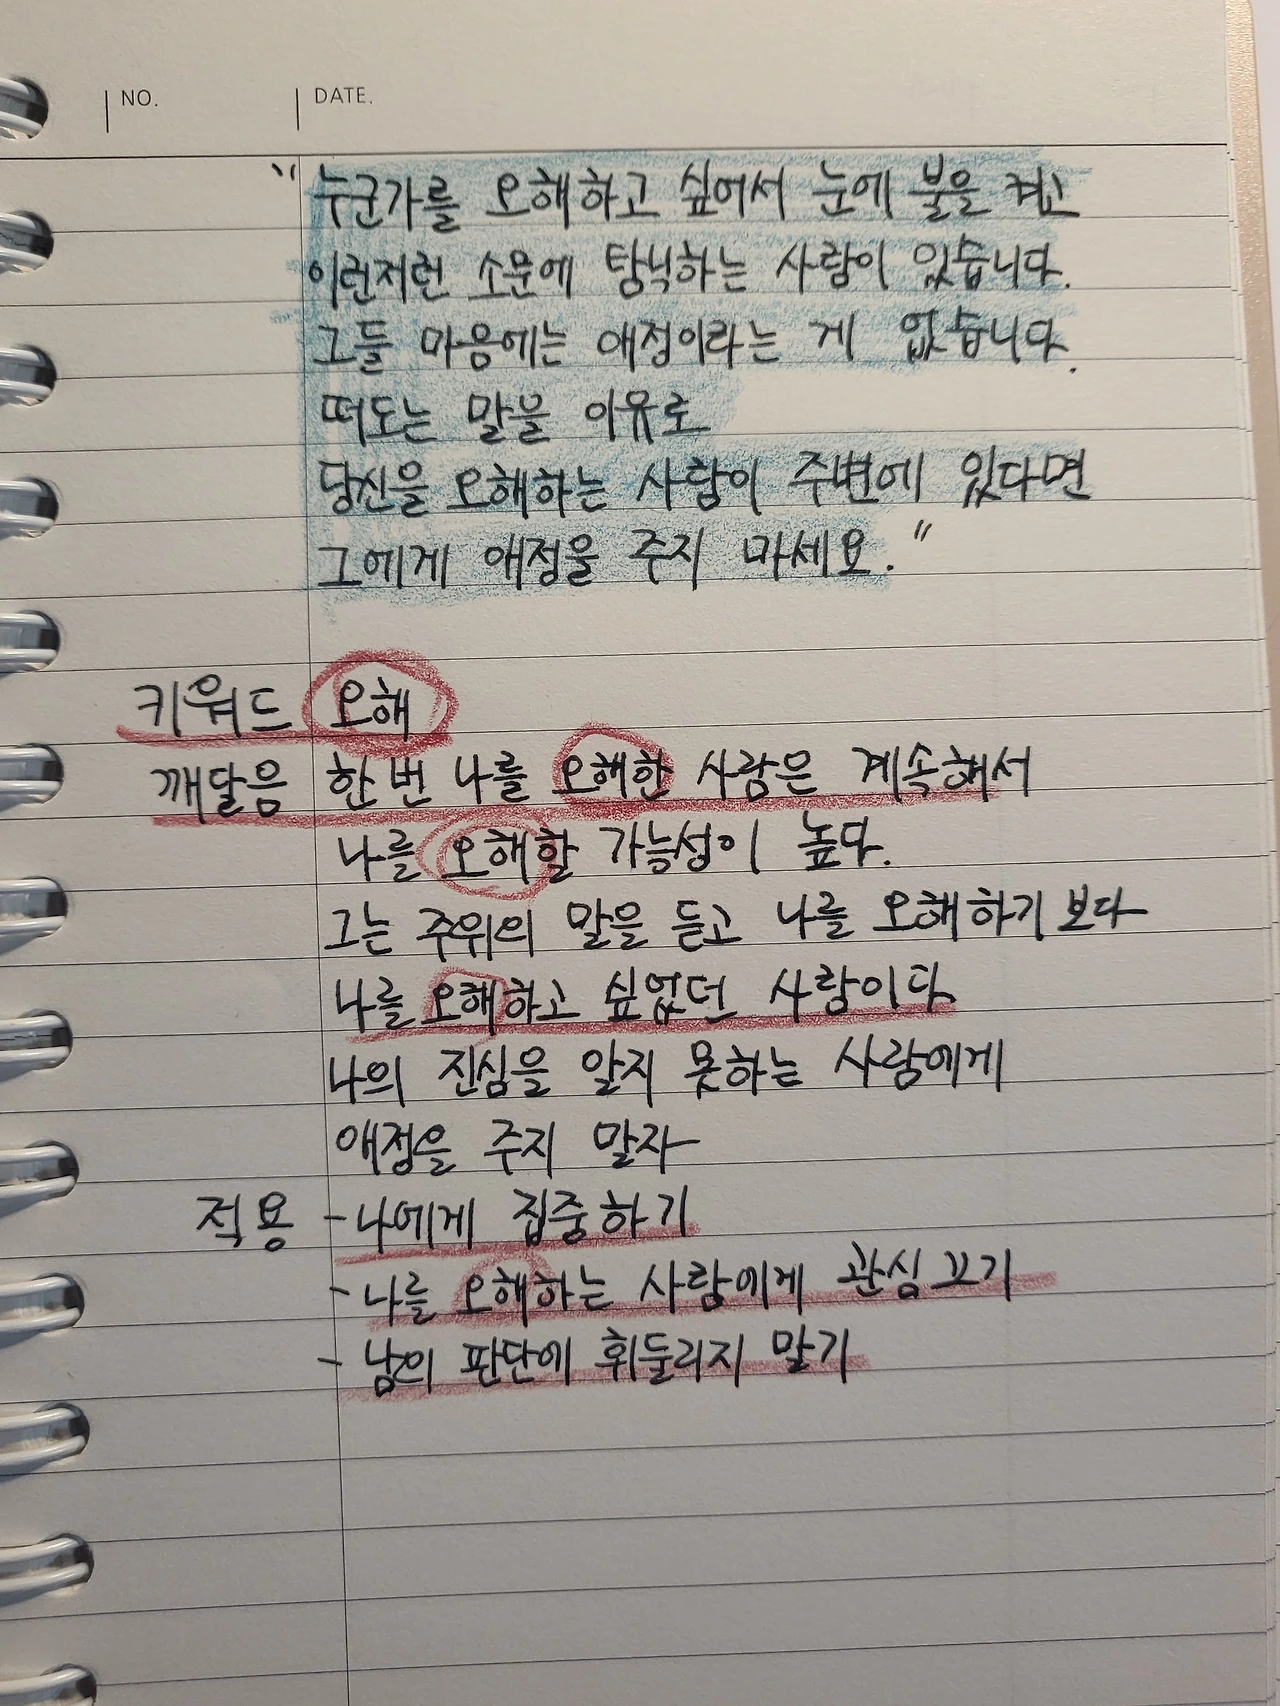 NO. DATE.
"누군가를 오해하고 싶어서 눈에 불을 켜고
이런저런 소문에 탐닉하는 사람이 있습니다.
그들 마음에는 애정이라는 게 없습니다.
떠도는 말을 이유로
당신을 오해하는 사람이 주변에 있다면
그에게 애정을 주지 마세요."
키워드 오해
깨달음 한 번 나를 오해한 사람은 계속해서
나를 오해할 가능성이 높다.
그는 주위의 말을 듣고 나를 오해하기 보다
나를 오해하고 싶었던 사람이다.
나의 진심을 알지 못하는 사람에게
애정을 주지 말자
적용 - 나에게 집중하기
- 나를 오해하는 사람에게 관심 끄기
- 남의 판단에 휘둘리지 말기